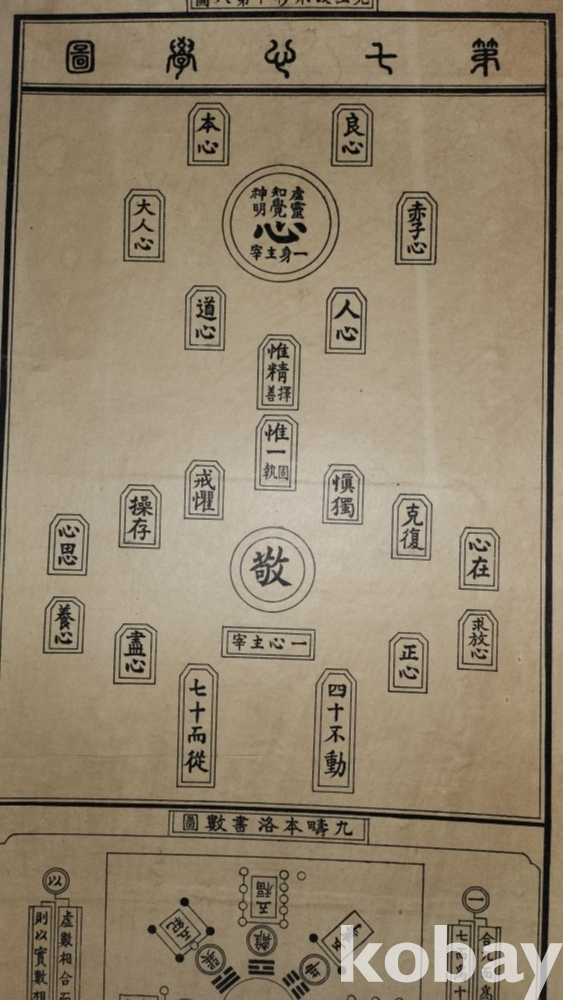 第七心學圖
良心
本心
虛靈
知覺
神明
心
一身主宰
赤子心
大人心
人心
道心
惟精
擇善
惟一
固執
愼獨
戒懼
克復
操存
心在
心思
敬
求放心
養心
正心
盡心
一心主宰
四十不動
七十而從
九疇本洛書數圖
一
以
虛數相合
則以實數
五福
離
kobay